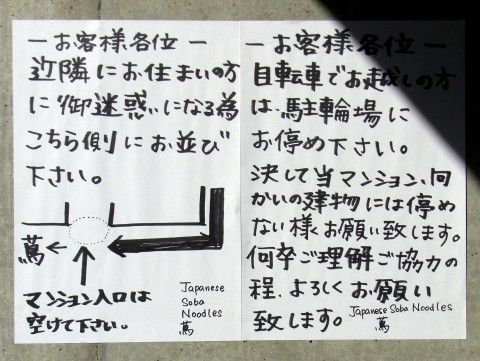 ーお客様各位ー
近隣にお住まいの方
に御迷惑になる為
こちら側にお並び
下さい。
蔦
マンション入口は
空けて下さい。
Japanese
Soba
Noodles
蔦
ーお客様各位ー
自転車でお越しの方
は、駐輪場に
お停め下さい。
決して当マンション、向
かいの建物には停め
ない様お願い致します。
何卒ご理解ご協力の
程、よろしくお願い
致します。
Japanese Soba Noodles
蔦